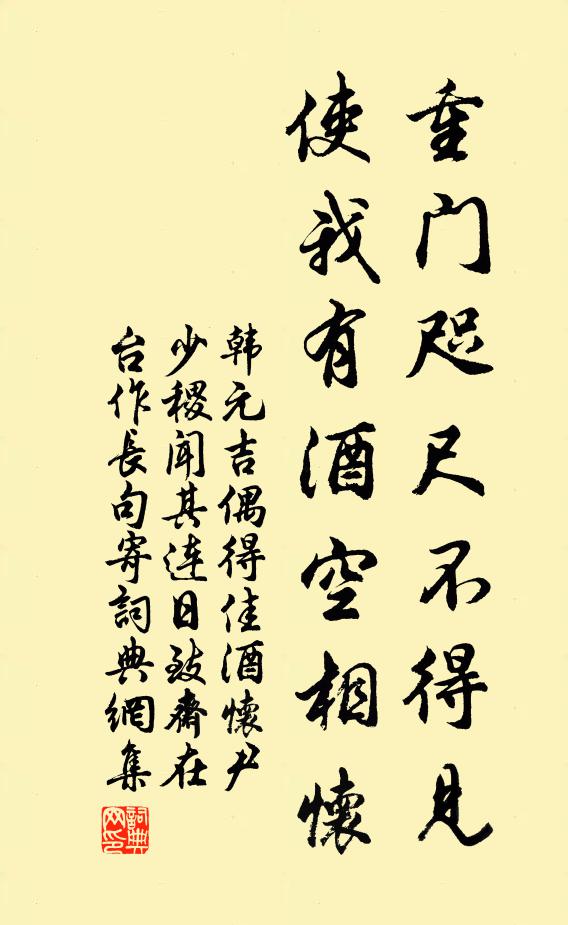 重门咫尺不得見
使我有酒空相懷
韩元吉偶得佳酒懷尹
少稷闻其连日致齋在
台作長句寄詞典網集
詞典
网印